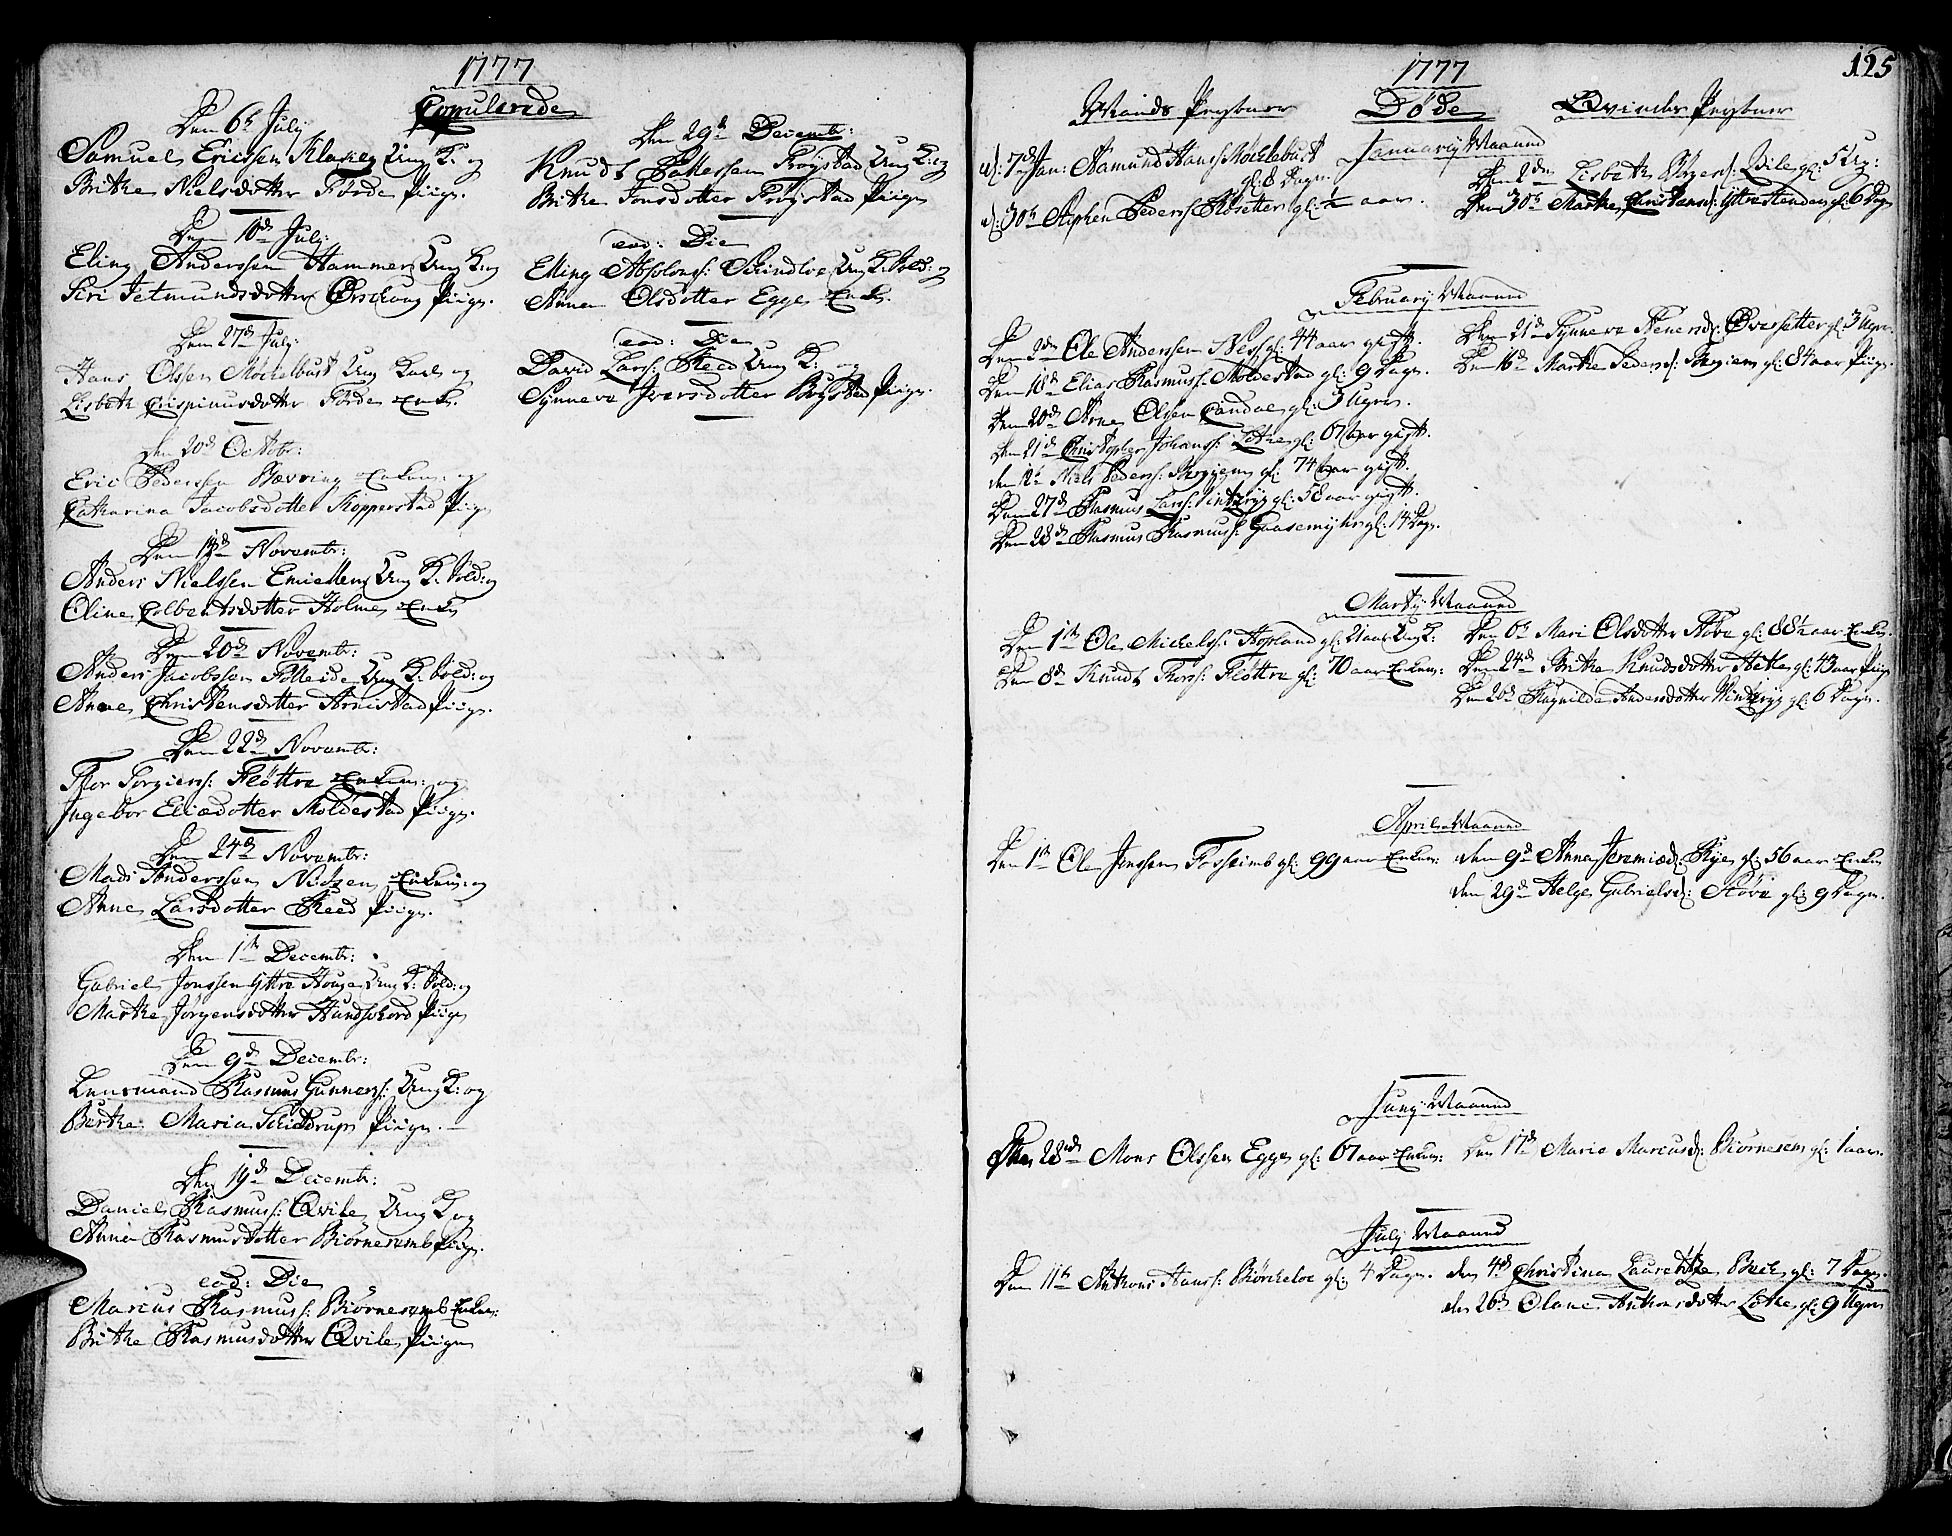 1777
Copulerede
Den 6th July
Samuel Ericssen Klakeg Ung K: og
Brithe Nielsdotter Förde Piige.
Den 10de July
Eling Anderssen Hammer Ung K: og
Siri Jetmundsdotter Ørschoug Piige.
Den 27de July
Hans Olssen Möckelbust Ung Karl og
Lisbeth Crispinusdotter Förde Enke.
Den 20de Octobr:
Eric Pedersen Bævring Enkem: og
Catharina Jacobsdotter Kopperstad Piige
Den 14de Novembr:
Anders Nielssen Emiellem Ung K. Sold: og
Oline Colbentsdotter Holme Enke
Den 20de Novembr:
Anders Jacobssen Folleide Ung K. Sold: og
Anne Christensdotter Arnestad Piige.
Den 22de Novembr:
Thor Torgierss: Flöttre Enkem: og
Ingebor Eliædotter Moldestad Piige.
Den 24de Novembr:
Mads Anderssen Enkem: og
Anne Larsdotter Reed Piige.
Den 1th Decembr:
Gabriel Jonssen Yttre Houge Ung K: Sold: og
Marthe Jörgensdotter Hundskord Piige
Den 9de Decembr:
Lensmand Rasmus Gunnerss: Ung K: og
Birthe Maria Schieldrups Piige.
Den 19de Decembr:
Daniel Rasmuss: Qvile Ung K og
Anne Rasmusdotter Biörneremb Piige.
eod: Die
Marcus Rasmuss: Biörneremb Enkem:
Brithe Rasmusdotter Qvile Piige
Den 29de Decembr:
Knudt Pedersen Fröystad Ung K: og
Brithe Jonsdotter Fröystad Piige
eod: Die
Elling Absolons: Ung K. Sold: og
Anne Olsdotter Egge Enke.
eod: Die
David Larss: Reed Ung K: og
Synneva Iversdotter Piige.
125
1777
Mands Persohner Döde Qvinde Persohner
January Maaned
d: 7de Jan: Aamund Hanss: Möckelbust
gl: 8 Dage.
d: 30th Stephen Pederss: gl: 1/2 aar.
Den 2den Lisbeth gl: 5 Ug:
Den 30th Marthe Christensd: Yttrestenden gl: 6 Dage
February Maaned
Den 2de Ole Anderssen Nes gl: 44 aar gift.
Den 18de Elias Rasmuss: Moldestad gl: 9 Dage.
Den 20de Arne Olsen Eandal gl: 3 Uger.
Den 21de Christopher Johanss: Lothe gl: 67 aar gift.
den 12th Niels Pederss: gl: 74 aar gift.
Den 27de Rasmus Larss: gl: 58 aar gift.
Den 28de Rasmus Rasmuss: Gaasemyhr gl: 14 Dage.
Den 21de Synneva Övresetter gl: 3 Uger.
Den 16de Marthe Pedersd: gl: 84 aar Piige.
Marty Maaned
Den 1th Ole Mickelss: Hopland gl: 21 aar Ung K:
Den 8de Knudt Thorss: Flöttre gl: 70 aar Enkem:
Den 6th Mari Olsdotter Röve gl: 88 1/2 aar Enke.
Den 24de Brithe Knudsdotter Hetle gl: 43 aar Piige
Den 26de Ragnilde Andersdotter gl: 6 Dage.
April Maaned
Den 1th Ole Jonssen Fosheimb gl: 99 aar Enkem:
den 9de Anna Jeremiæd: Rye gl: 56 aar Enke
den 29de Helge Gabrielsd: Röve gl: 9 Dage.
Juny Maaned
Den 28nde Mons Olssen Egge gl: 67 aar Enkem:
Den 17de Marie Marcusd: Biörnerem gl: 1 aar.
July Maaned
Den 11th Anthoni Hanss: Biörkeloe gl: 4 Dage.
den 4de Christina Laurethea Buch gl: 7 Dage.
den 26de Olane Anthonisdotter Lothe gl: 9 Uger